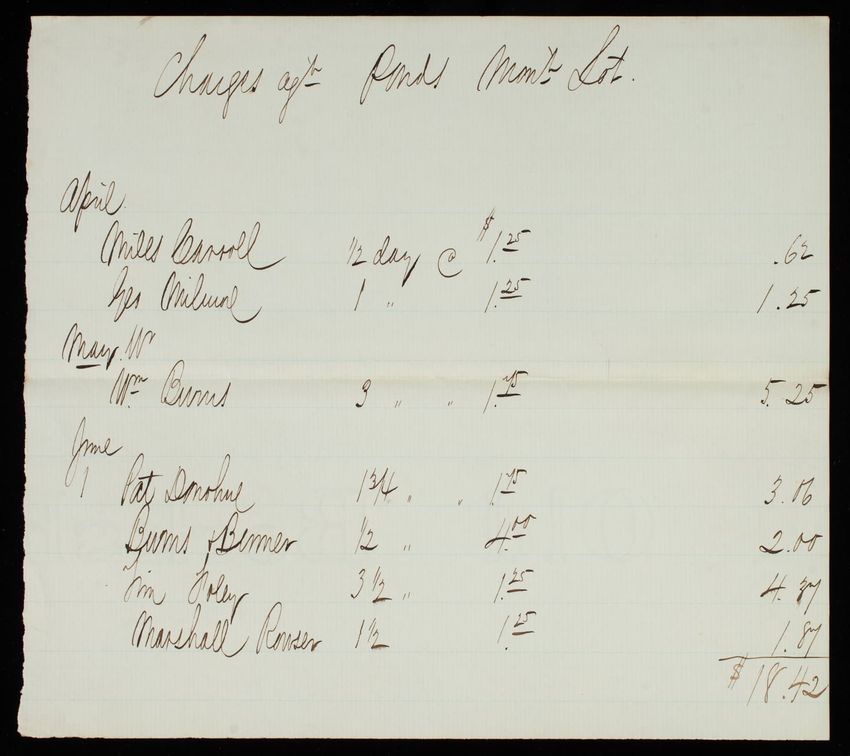 Charges agt Ponds Mont Lot.
April
Miles Carroll 1/2 day @ $1.25 .62
Geo Milune 1 " 1.25 1.25
May. Wm
Wm Burns 3 " " 1.75 5.25
June
1 Pat Donohue 1 3/4 " " 1.75 3.06
Burns & Benner 1/2 " 4.00 2.00
Tim Foley 3 1/2 " 1.25 4.37
Marshall Rouser 1 1/2 1.25 1.87
$18.42